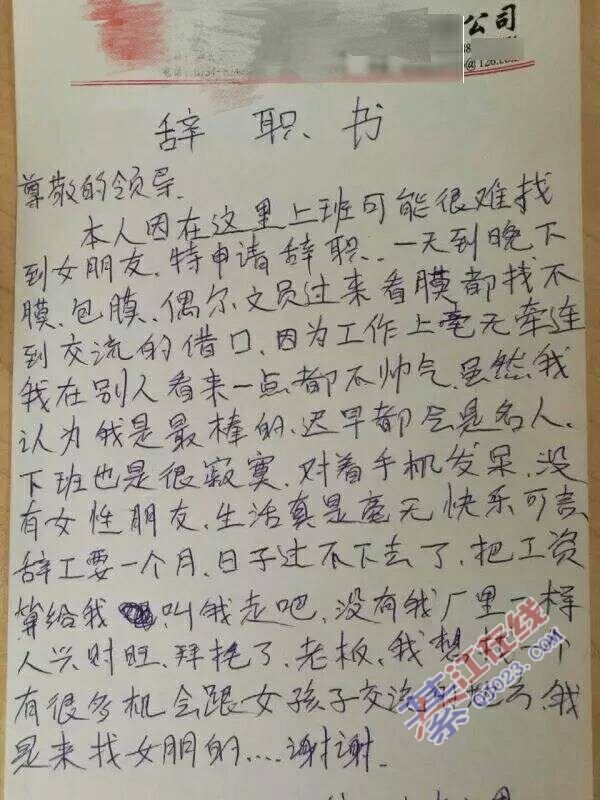 公司
辞职书
尊敬的领导.
本人因在这里上班可能很难找
到女朋友.特申请辞职.一天到晚下
膜、包膜、偶尔文员过来看膜都找不
到交流的借口、因为工作上毫无牵连
我在别人看来一点都不帅气.虽然我
认为我是最棒的、迟早都会是名人.
下班也是很寂寞.对着手机发呆.没
有女性朋友.生活真是毫无快乐可言
辞工要一个月.日子过不下去了.把工资
算给我 叫我走吧.没有我厂里一样
人兴财旺.拜托了.老板.我想找一个
有很多机会跟女孩子交流的地方.我
是来找女朋的....谢谢.
綦江在线
QJ023.com